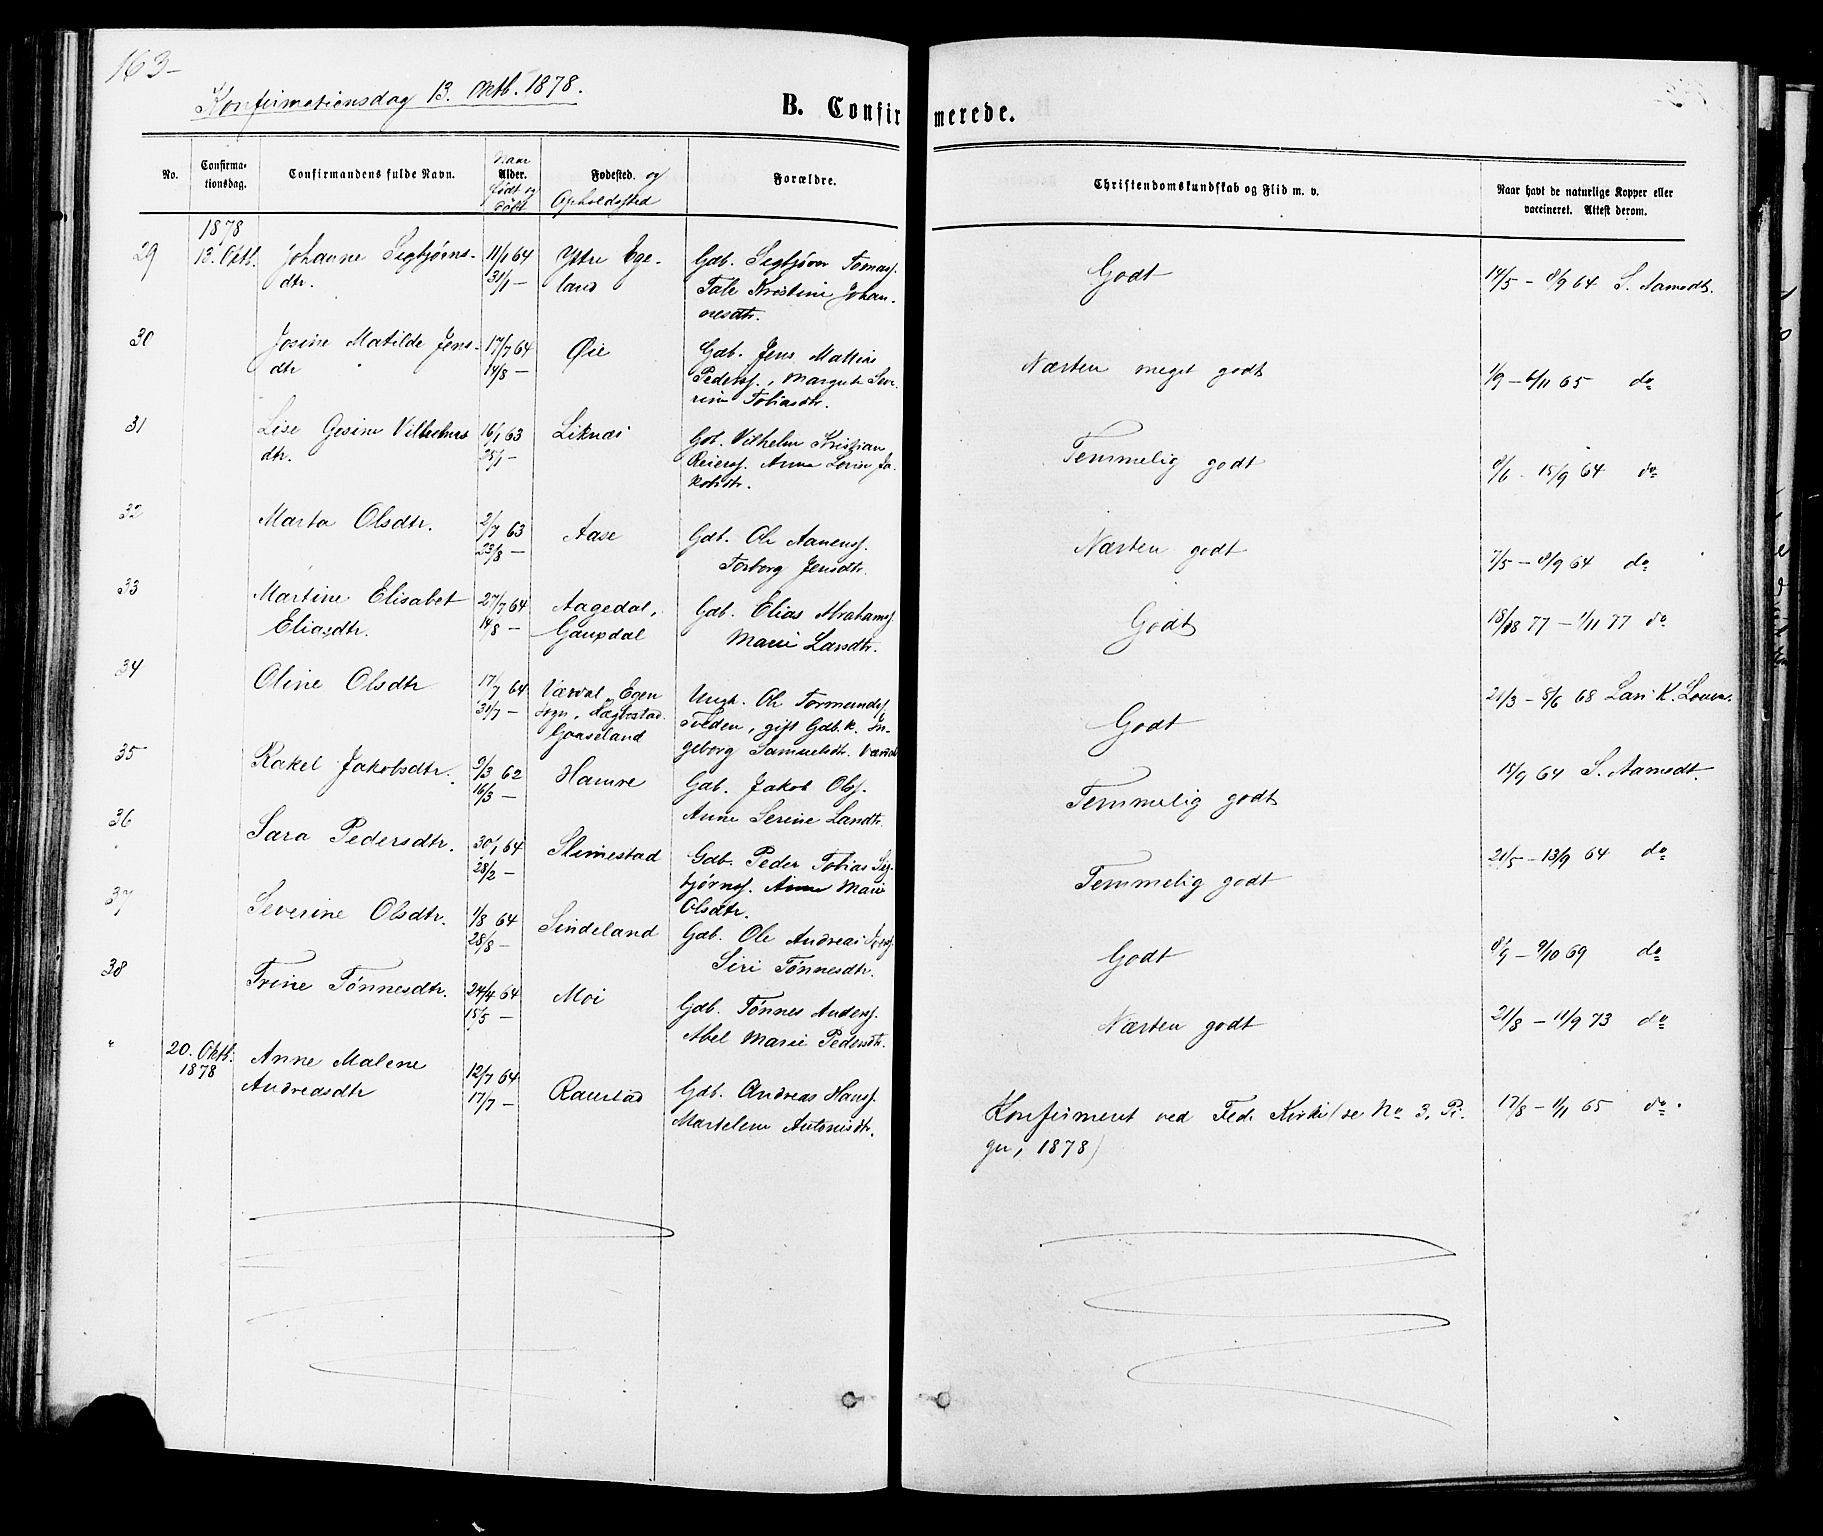 163-
Konfirmationsdag 13. Oktb. 1878.
B. Confirmerede.
No.
Confirma-
tionsdag.
Confirmandens fulde Navn.
Naar
Alder.
født og
døbt
Fødested. og
Opholdssted
Forældre.
Christendomskundskab og Flid m. v.
Naar havt de naturlige Kopper eller
vaccineret. Attest derom.
1878
29 13. Oktb. Johanne Sigbjørns- 11/1 64 Ytre Ege- Gdb. Sigbjørn Tomass. Godt 14/5 - 8/9 64 S. Aamodt.
dtr. 31/1 - land Tale Kristine Johan-
nesdtr.
30 Josine Matilde Jens- 17/7 64 Øie Gdb. Jens Mathias Næsten meget godt 1/9 - 6/11 65 do
dtr 14/8 - Peders., Margrete Seve-
rine Tobiasdtr.
31 Lise Gesine Vilhelms 16/1 63 Liknæs Gdb. Vilhelm Kristian Temmelig godt 8/6 - 15/9 64 do
dtr. 25/1 - Reiers. Anna Lovise Ja-
kobsdtr.
32 Marta Olsdtr. 2/7 63 Aase Gdb. Ole Aanens. Næsten godt 7/5 - 8/9 64 do
23/8 - Torborg Jensdtr.
33 Martine Elisabet 27/7 64 Aagedal, Gdb. Elias Abrahams. Godt 18/8 77 - 1/11 77 do
Eliasdtr. 14/8 - Gaupdal Marie Larsdtr.
34 Oline Olsdtr 17/7 64 Værdal, Eken Ungk. Ole Tormunds. Godt 21/3 - 8/6 68 Lars K.
31/7 - sogn, Hægbostad. gift Gdb.k. In-
Gaaseland geborg Samuelsdtr.
35 Rakel Jakobsdtr. 9/3 62 Hamre Gdb. Jakob Ols. Temmelig godt 15/9 64 S. Aamodt.
16/3 - Anne Serine Larsdtr.
36 Sara Pedersdtr. 30/1 64 Slimestad Gdb. Peder Tobias Sig- Temmelig godt 21/5 - 13/9 64 do
28/2 - bjørns. Anne Marie
Olsdtr.
37 Severine Olsdtr. 1/8 64 Sindeland Gdb. Ole Andreas Godt 8/9 - 9/10 69 do
28/8 - Siri Tønnesdtr.
38 Trine Tønnesdtr. 24/4 64 Moi Gdb. Tønnes Anders. Næsten godt 21/8 - 11/9 73 do
15/5 - Abel Marie Pedersdtr.
" 20. Oktb. Anne Malene 12/7 64 Raustad Gdb. Andreas Hans. Konfirmeret ved Feda Kirke (se No 3, Pi- 17/8 - 1/1 65 do.
1878 Andreasdtr 17/7 - Martelene Antonisdtr. ger, 1878)